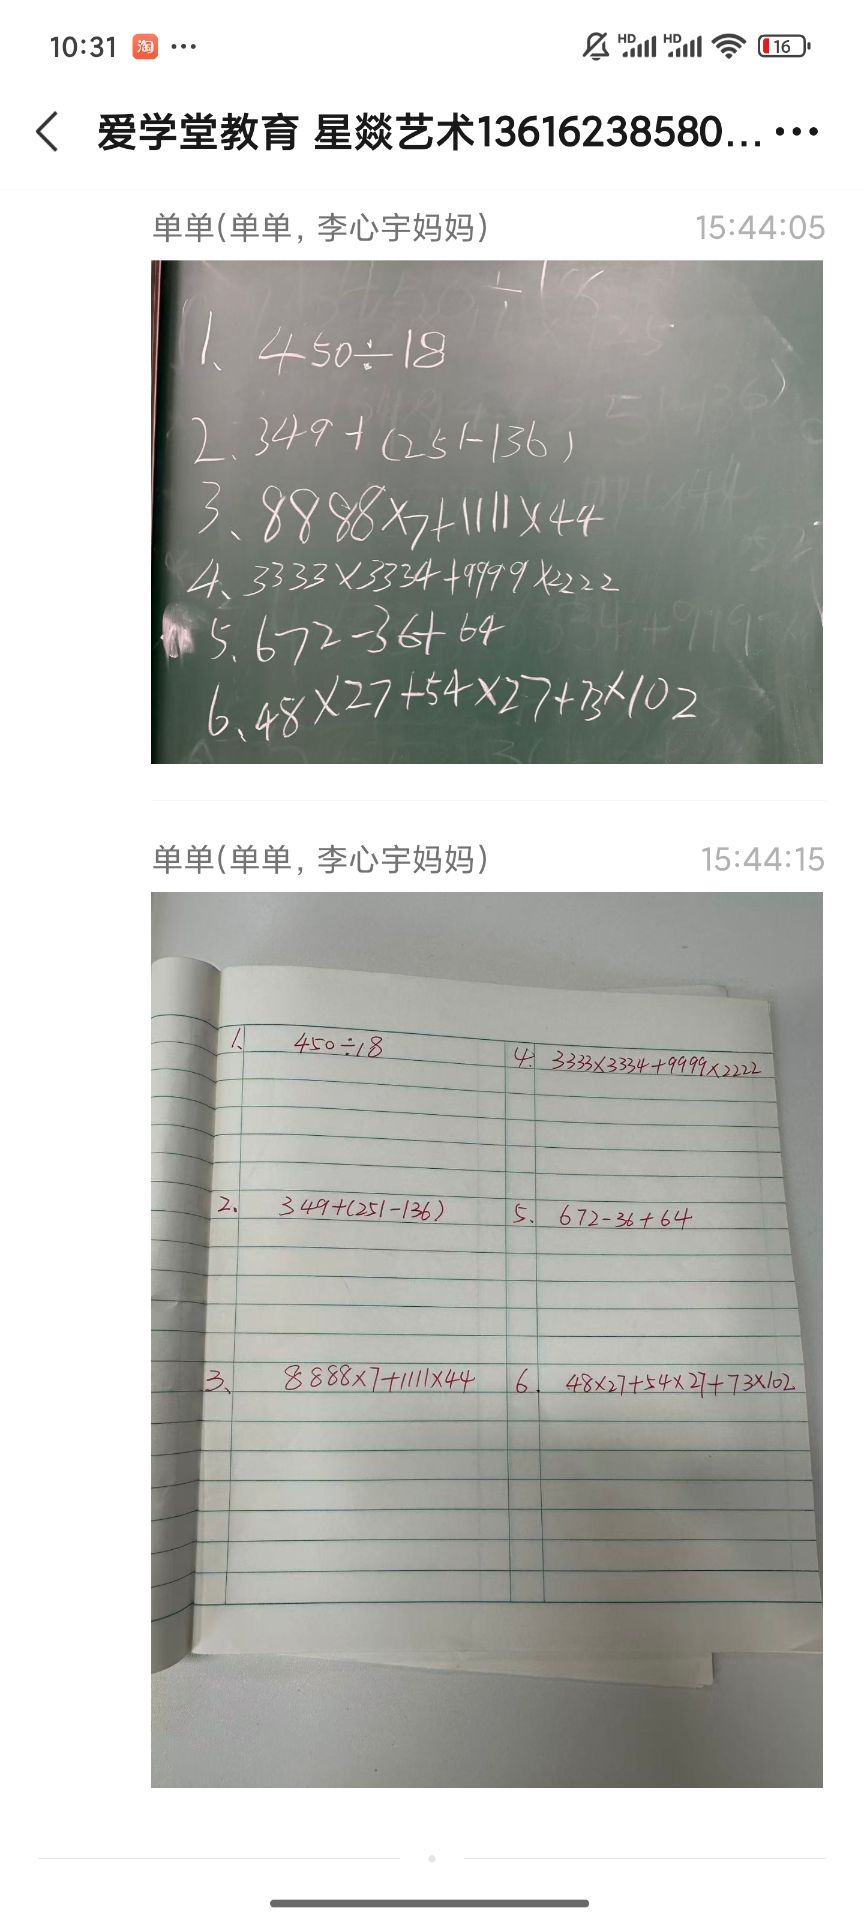 10:31 淘 ··· HD HD 16
爱学堂教育 星燚艺术13616238580... ···
单单(单单, 李心宇妈妈) 15:44:05
1、450÷18
2、349+(251-136)
3、8888×7+1111×44
4、3333×3334+9999×2222
5、672-36+64
6、48×27+54×27+73×102
单单(单单, 李心宇妈妈) 15:44:15
1、 450÷18
4. 3333×3334+9999×2222
2. 349+(251-136)
5、 672-36+64
3、 8888×7+1111×44
6. 48×27+54×27+73×102